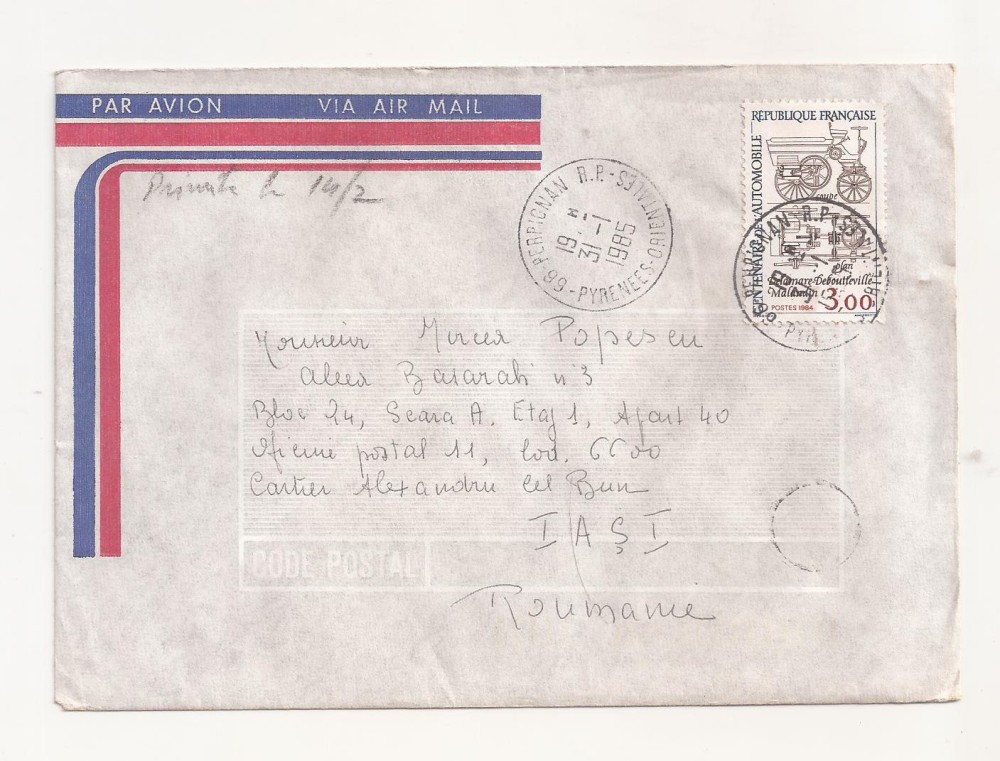 PAR AVION VIA AIR MAIL
le 14/2
66-PERPIGNAN R.P.-PYRENEES-ORIENTALES
19 H
31-1
1985
RÉPUBLIQUE FRANÇAISE
CENTENAIRE DE L'AUTOMOBILE
coupe
plan
Delamare-Deboutteville
Malandin
3,00
POSTES 1984
Monsieur Mircea Popescu
Aleea Basarabi n° 3
Bloc 24, Scara A, Etaj 1, Apart 40
Oficiul postal 11, Cod. 6600
Cartier Alexandru cel Bun
IAȘI
CODE POSTAL
Roumanie